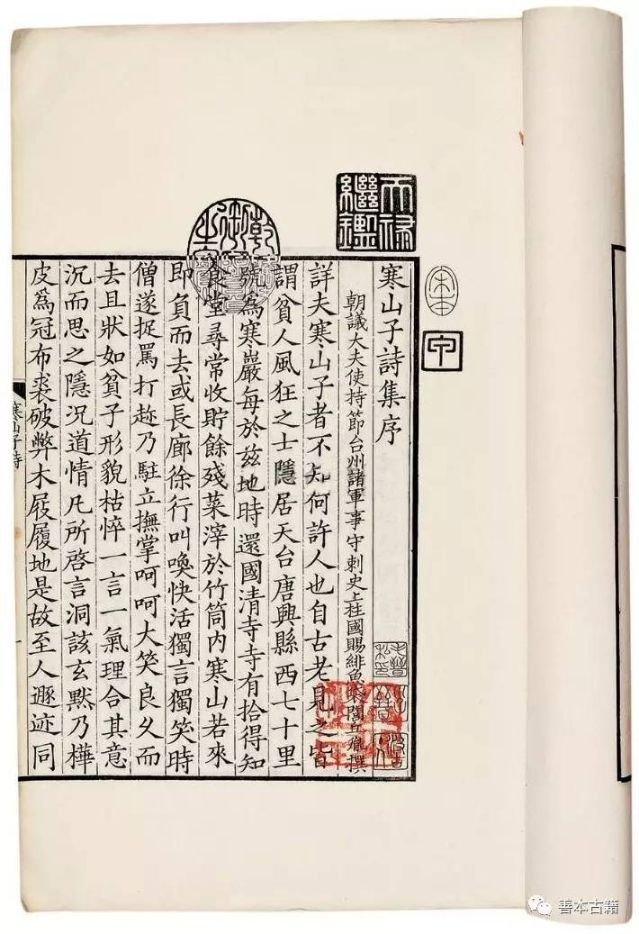 宋本
甲
天祿繼鑑
乾隆御覽之寶
寒山子詩集序
朝議大夫使持節台州諸軍事守刺史上柱國賜緋魚袋閭丘胤撰
詳夫寒山子者不知何許人也自古老見之皆
謂貧人風狂之士隱居天台唐興縣西七十里
號為寒巖每於兹地時還國清寺寺有拾得知
食堂尋常收貯餘殘菜滓於竹筒内寒山若來
即負而去或長廊徐行叫喚快活獨言獨笑時
僧遂捉罵打趂乃駐立撫掌呵呵大笑良久而
去且狀如貧子形貌枯悴一言一氣理合其意
沉而思之隱况道情凡所啓言洞該玄默乃樺
皮為冠布裘破弊木屐履地是故至人遯迹同
寒山子詩
善本古籍